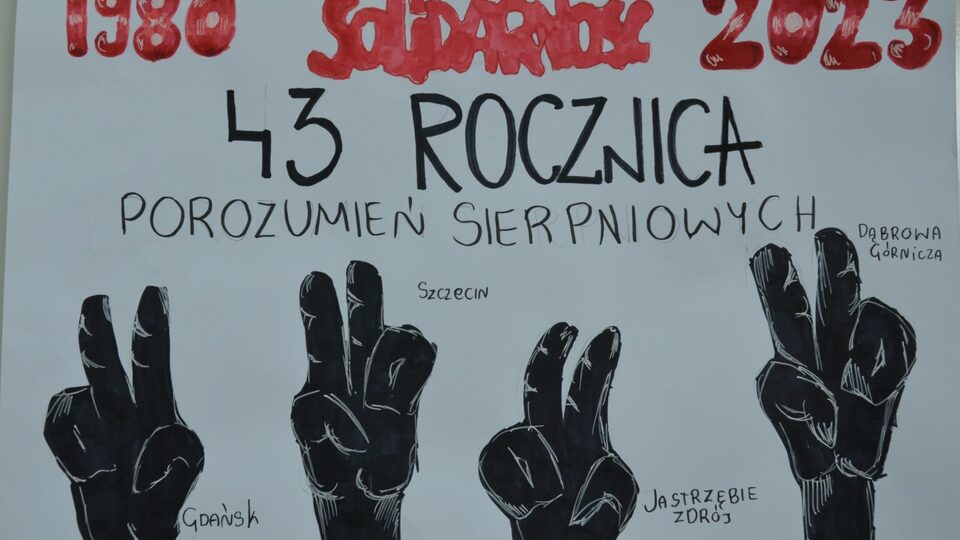 1980 SOLIDARNOŚĆ 2023
43 ROCZNICA
POROZUMIEŃ SIERPNIOWYCH
DĄBROWA
GÓRNICZA
SZCZECIN
JASTRZĘBIE
ZDRÓJ
GDAŃSK